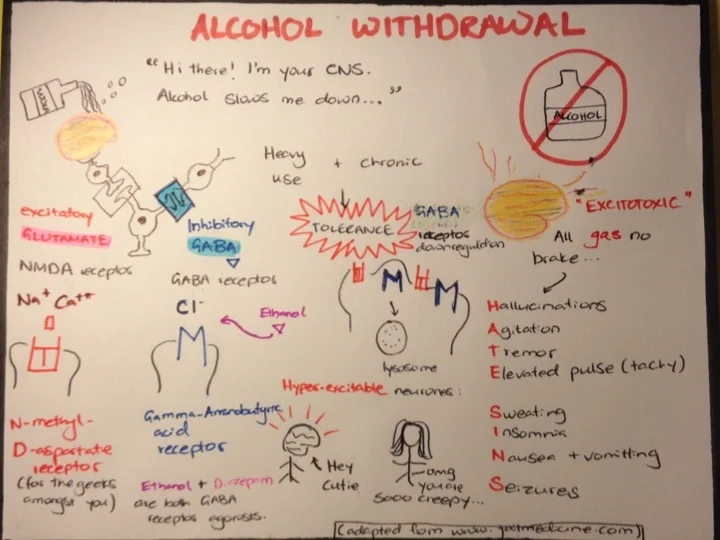 ALCOHOL WITHDRAWAL
"Hi there! I'm your CNS.
Alcohol slows me down..."
ALCOHOL
Heavy use + chronic
TOLERANCE
GABA
receptor
downregulation
"EXCITOTOXIC"
All gas no
brake...
excitatory
GLUTAMATE
NMDA receptor
Na+ Ca++
Inhibitory
GABA
GABA receptor
Cl-
Ethanol
lysosome
Hallucinations
Agitation
Tremor
Elevated pulse (tachy)
Sweating
Insomnia
Nausea + vomiting
Seizures
N-methyl-
D-aspartate
receptor
(for the geeks
amongst you)
Gamma-Aminobutyric
acid
receptor
Ethanol + Diazepam
are both GABA
receptor agonists.
Hyper-excitable neurones:
Hey
Cutie
omg
you are
sooo creepy...